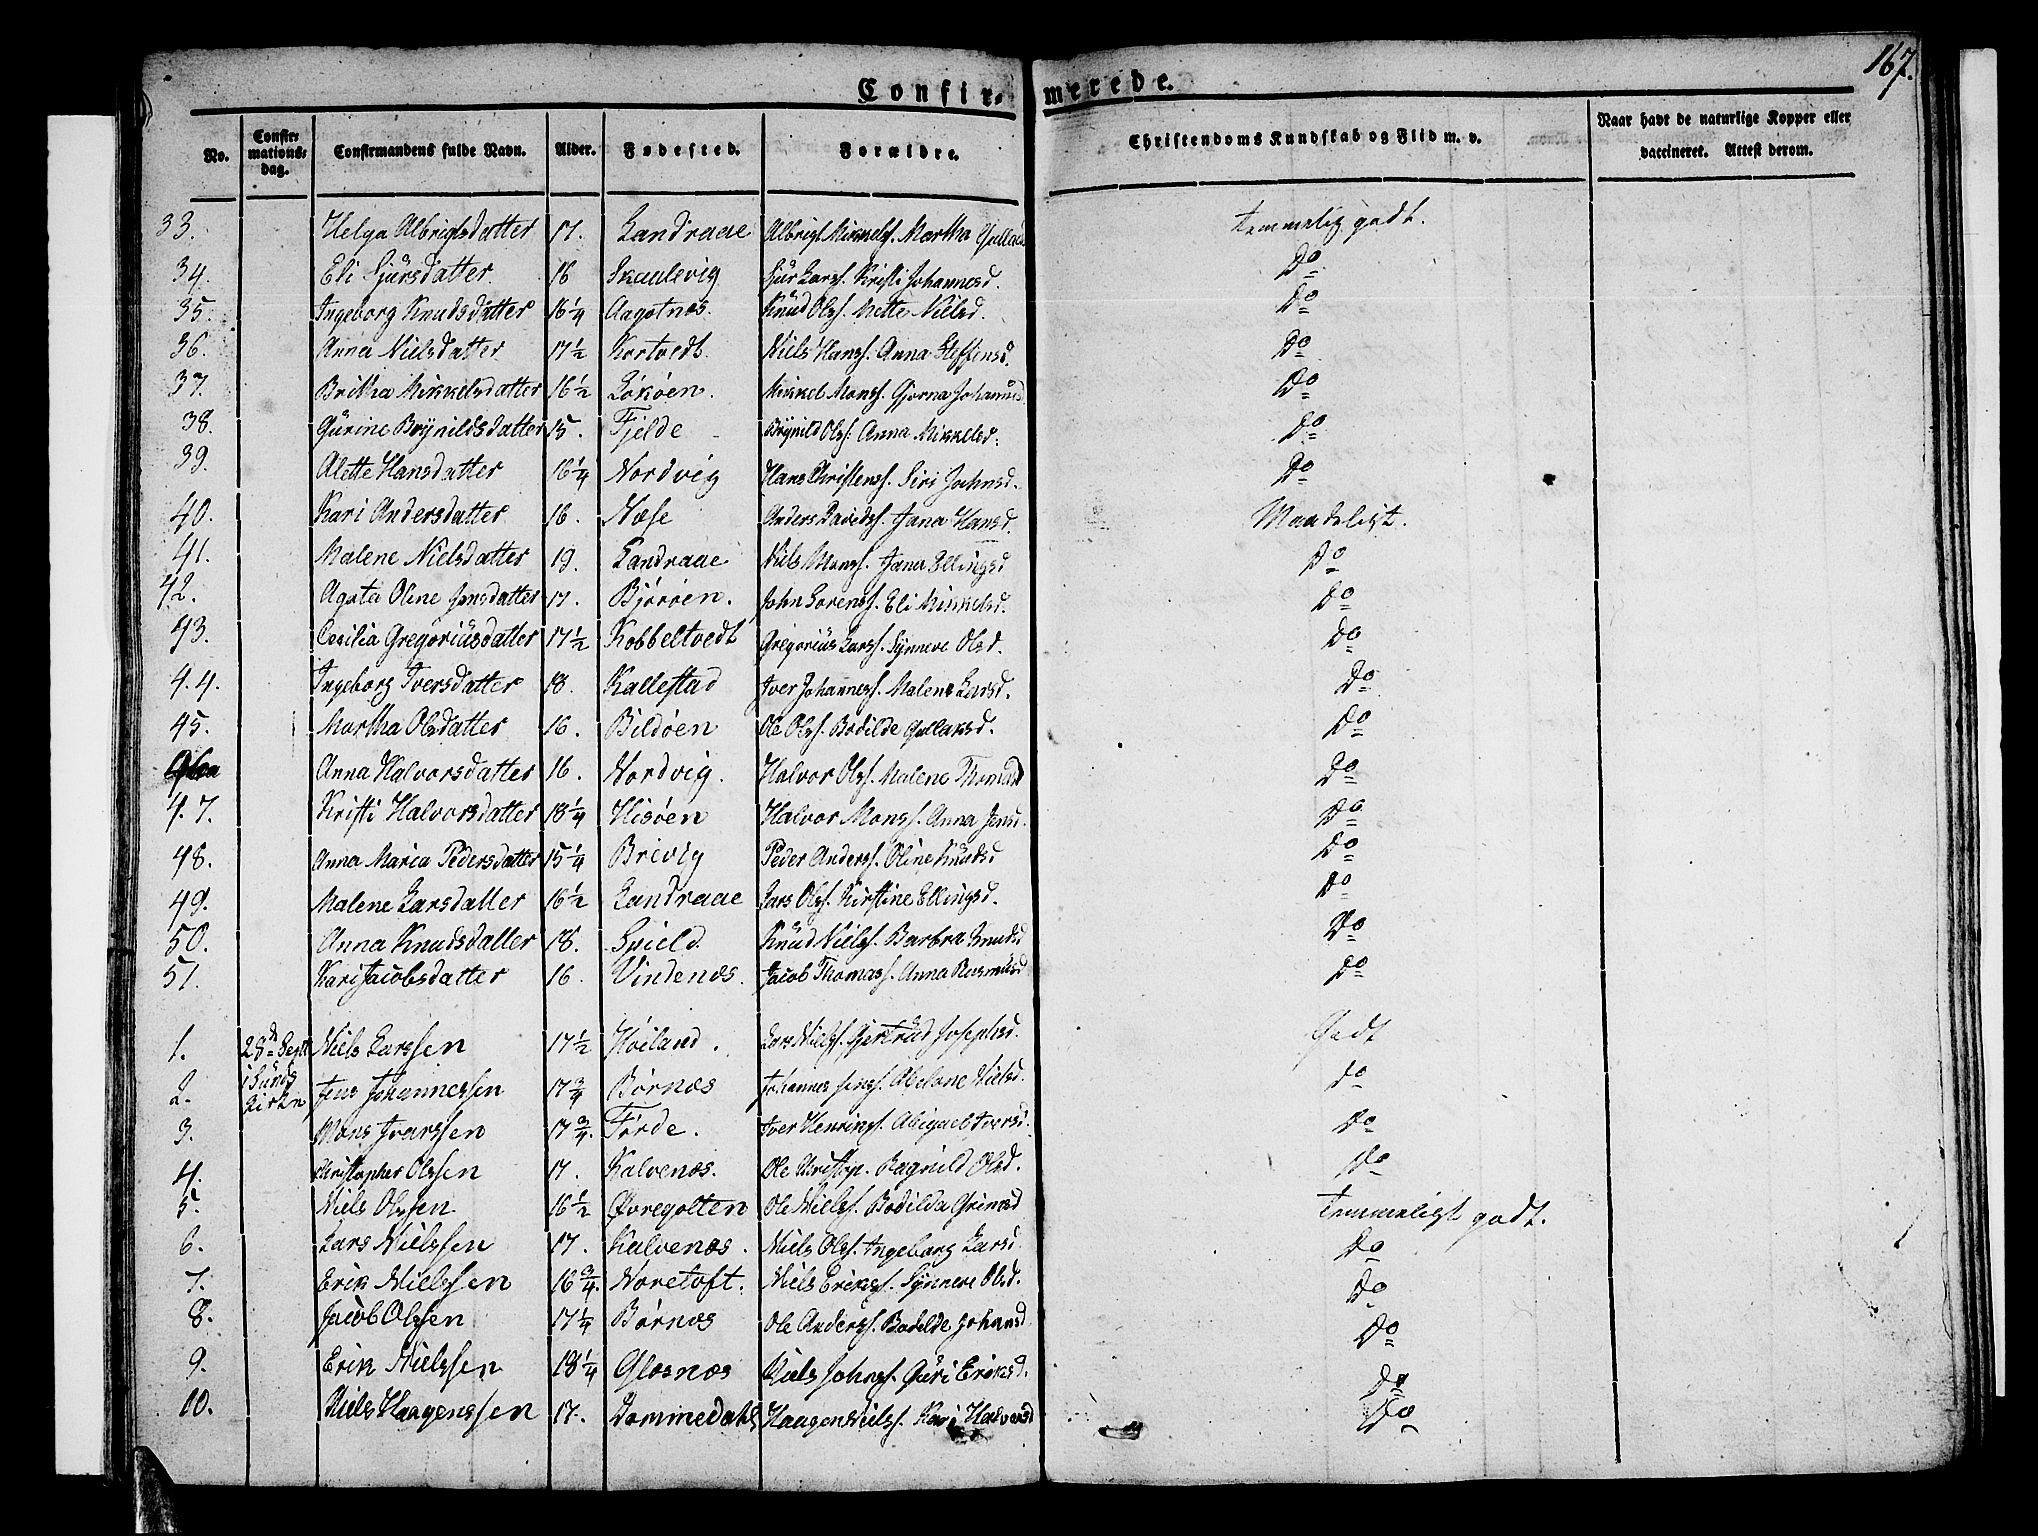 167.
Confir- merede.
No. | Confir-mations-dag. | Confirmandens fulde Navn. | Alder. | Fødested. | Forældre. | Christendoms Kundskab og Flid m. v. | Naar havt de naturlige Kopper eller vaccineret. Attest derom.
33. Helga Albrigtsdatter 17. Landraae Albrigt Mikkels. Martha temmelig godt.
34. Eli Sjürsdatter 16 Skaalevig Sjür Larss. Kristi Johannesd. Do
35. Ingeborg Knudsdatter 16 1/4 Aagotnæs. Knüd Olss. Mette Nielsd. Do
36. Anna Nielsdatter 17 1/2 Kortvedt. Niels Hanss. Anna Steffensd. Do
37. Britha Mikkelsdatter 16 1/2 Løkøen. Mikkel Monss. Gjorna Johannesd. Do
38. Gürine Brÿnildsdatter 15. Fjelde Brÿnild Olss. Anna Mikkelsd. Do
39. Alette Hansdatter 16 1/4 Nordvig Hans Christens. Siri Johnsd. Do
40. Kari Andersdatter 16. Næse Anders Davids. Jana Hansd. Maadeligt.
41. Malene Nielsdatter 19. Landraae Niels Monss. Jana Ellingsd Do
42. Agata Oline Jensdatter 17. Bjørøen. John Sorenss. Eli Mikkelsd. Do
43. Cecilia Gregoriüsdatter 17 1/2 Kobbeltvedt Gregoriüs Larss. Sÿnneve Olsd. Do
44. Ingeborg Iversdatter 18. Kallestad Iver Johanness. Malene Larsd. Do
45. Martha Olsdatter 16. Bildøen Ole Olss. Bodilde Gullaksd. Do
Anna Halvorsdatter 16. Nordvig. Halvor Olss. Malene Thomasd Do
47. Kristi Halvorsdatter 18 1/4 Hisøen Halvor Monss. Anna Jensd. Do
48. Anna Maria Pedersdatter 15 1/4 Brevig Peder Anderss. Oline Knüdsd Do
49. Malene Larsdatter 16 1/2 Landraae Lars Olss. Kirstine Ellingsd. Do
50. Anna Knudsdatter 18. Spield Knüd Nielss. Barbra Knudsd Do
51. Kari Jacobsdatter 16. Vindenæs. Jacob Thomass. Anna Rasmüsd Do
1. 28de Septr Niels Larssen 17 1/2 Høiland. Lars Nielss. Gjertrüd Josephsd. Godt
i Sünds
2. Kirken Jens Johannessen 17 3/4 Børnæs Johannes Jenss. Abelone Nielsd. Do
3. Mons Ivarssen 17 3/4. Førde. Iver Henriks. Abigael Iversd. Do
4. Christopher Olssen 17. Kalvenæs. Ole Christop. Ragnild Olsd. Do
5. Niels Olssen 16 1/2 Øvregolten Ole Nielss. Bodilda Grimsd Temmeligt godt.
6. Lars Nielssen 17. Kalvenæs. Niels Olss. Ingeborg Larsd Do
7. Erik Nielssen 16 3/4. Noretoft. Niels Erikss. Sÿnneve Olsd. Do
8. Jacob Olssen 17 1/4 Børnæs Ole Anderss. Bodelde Johansd Do
9. Erik Nielssen 18 1/4 Glesnæs Niels Johns. Güri Eriksd. Do
10. Niels Haagenssen 17. Dommedahl Haagen Nielss. Kari Halvorsd Do